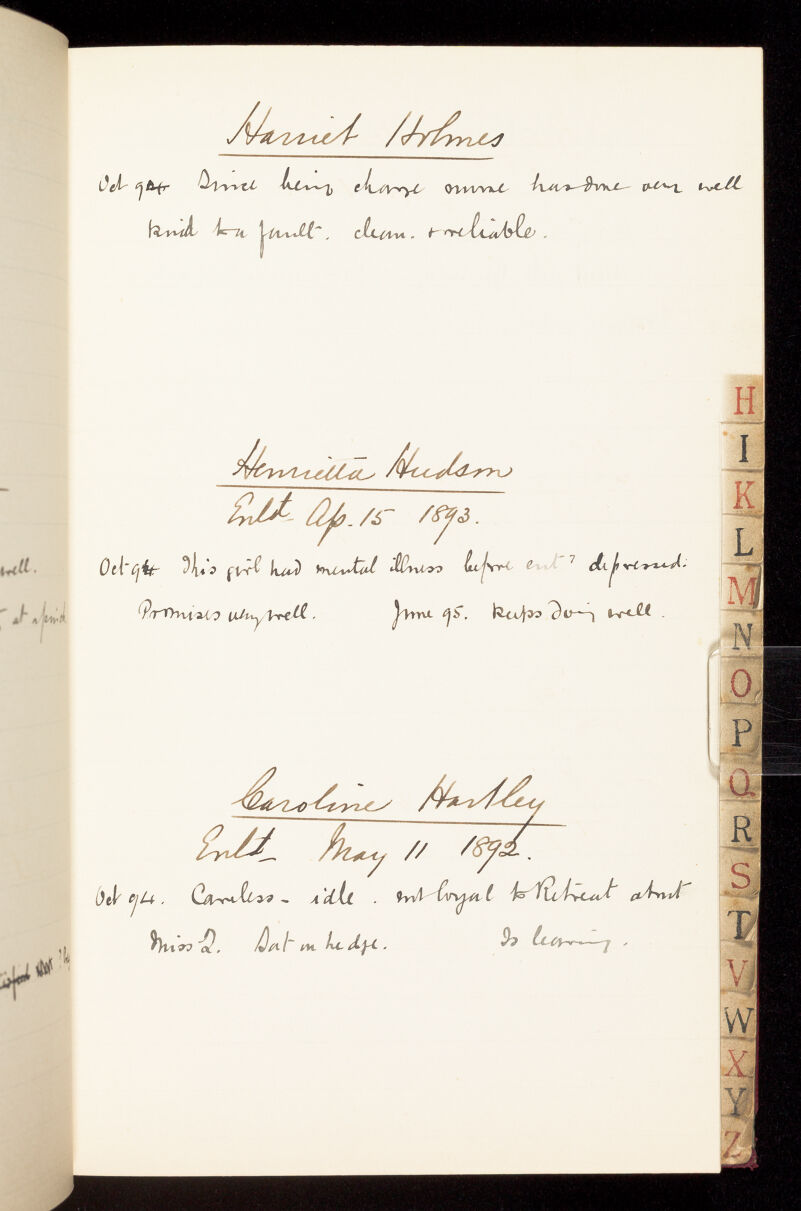 Harriet Holmes
Oct 94 Since being charge nurse has done very well
kind to a fault. clean. & reliable.
Henrietta Hudson
Entd. Ap. 15 1893.
Oct 94 This girl had mental illness before ent? depressed.
Promises very well. June 95. keeps doing well.
Caroline Hartley
Entd May 11 1892.
Oct 94. Careless - idle. not loyal to Retreat about
Miss Q. Sat on hedge. Is leaving.
well.
at
H
I
K
L
M
N
O
P
Q
R
S
T
V
W
X
Y
Z